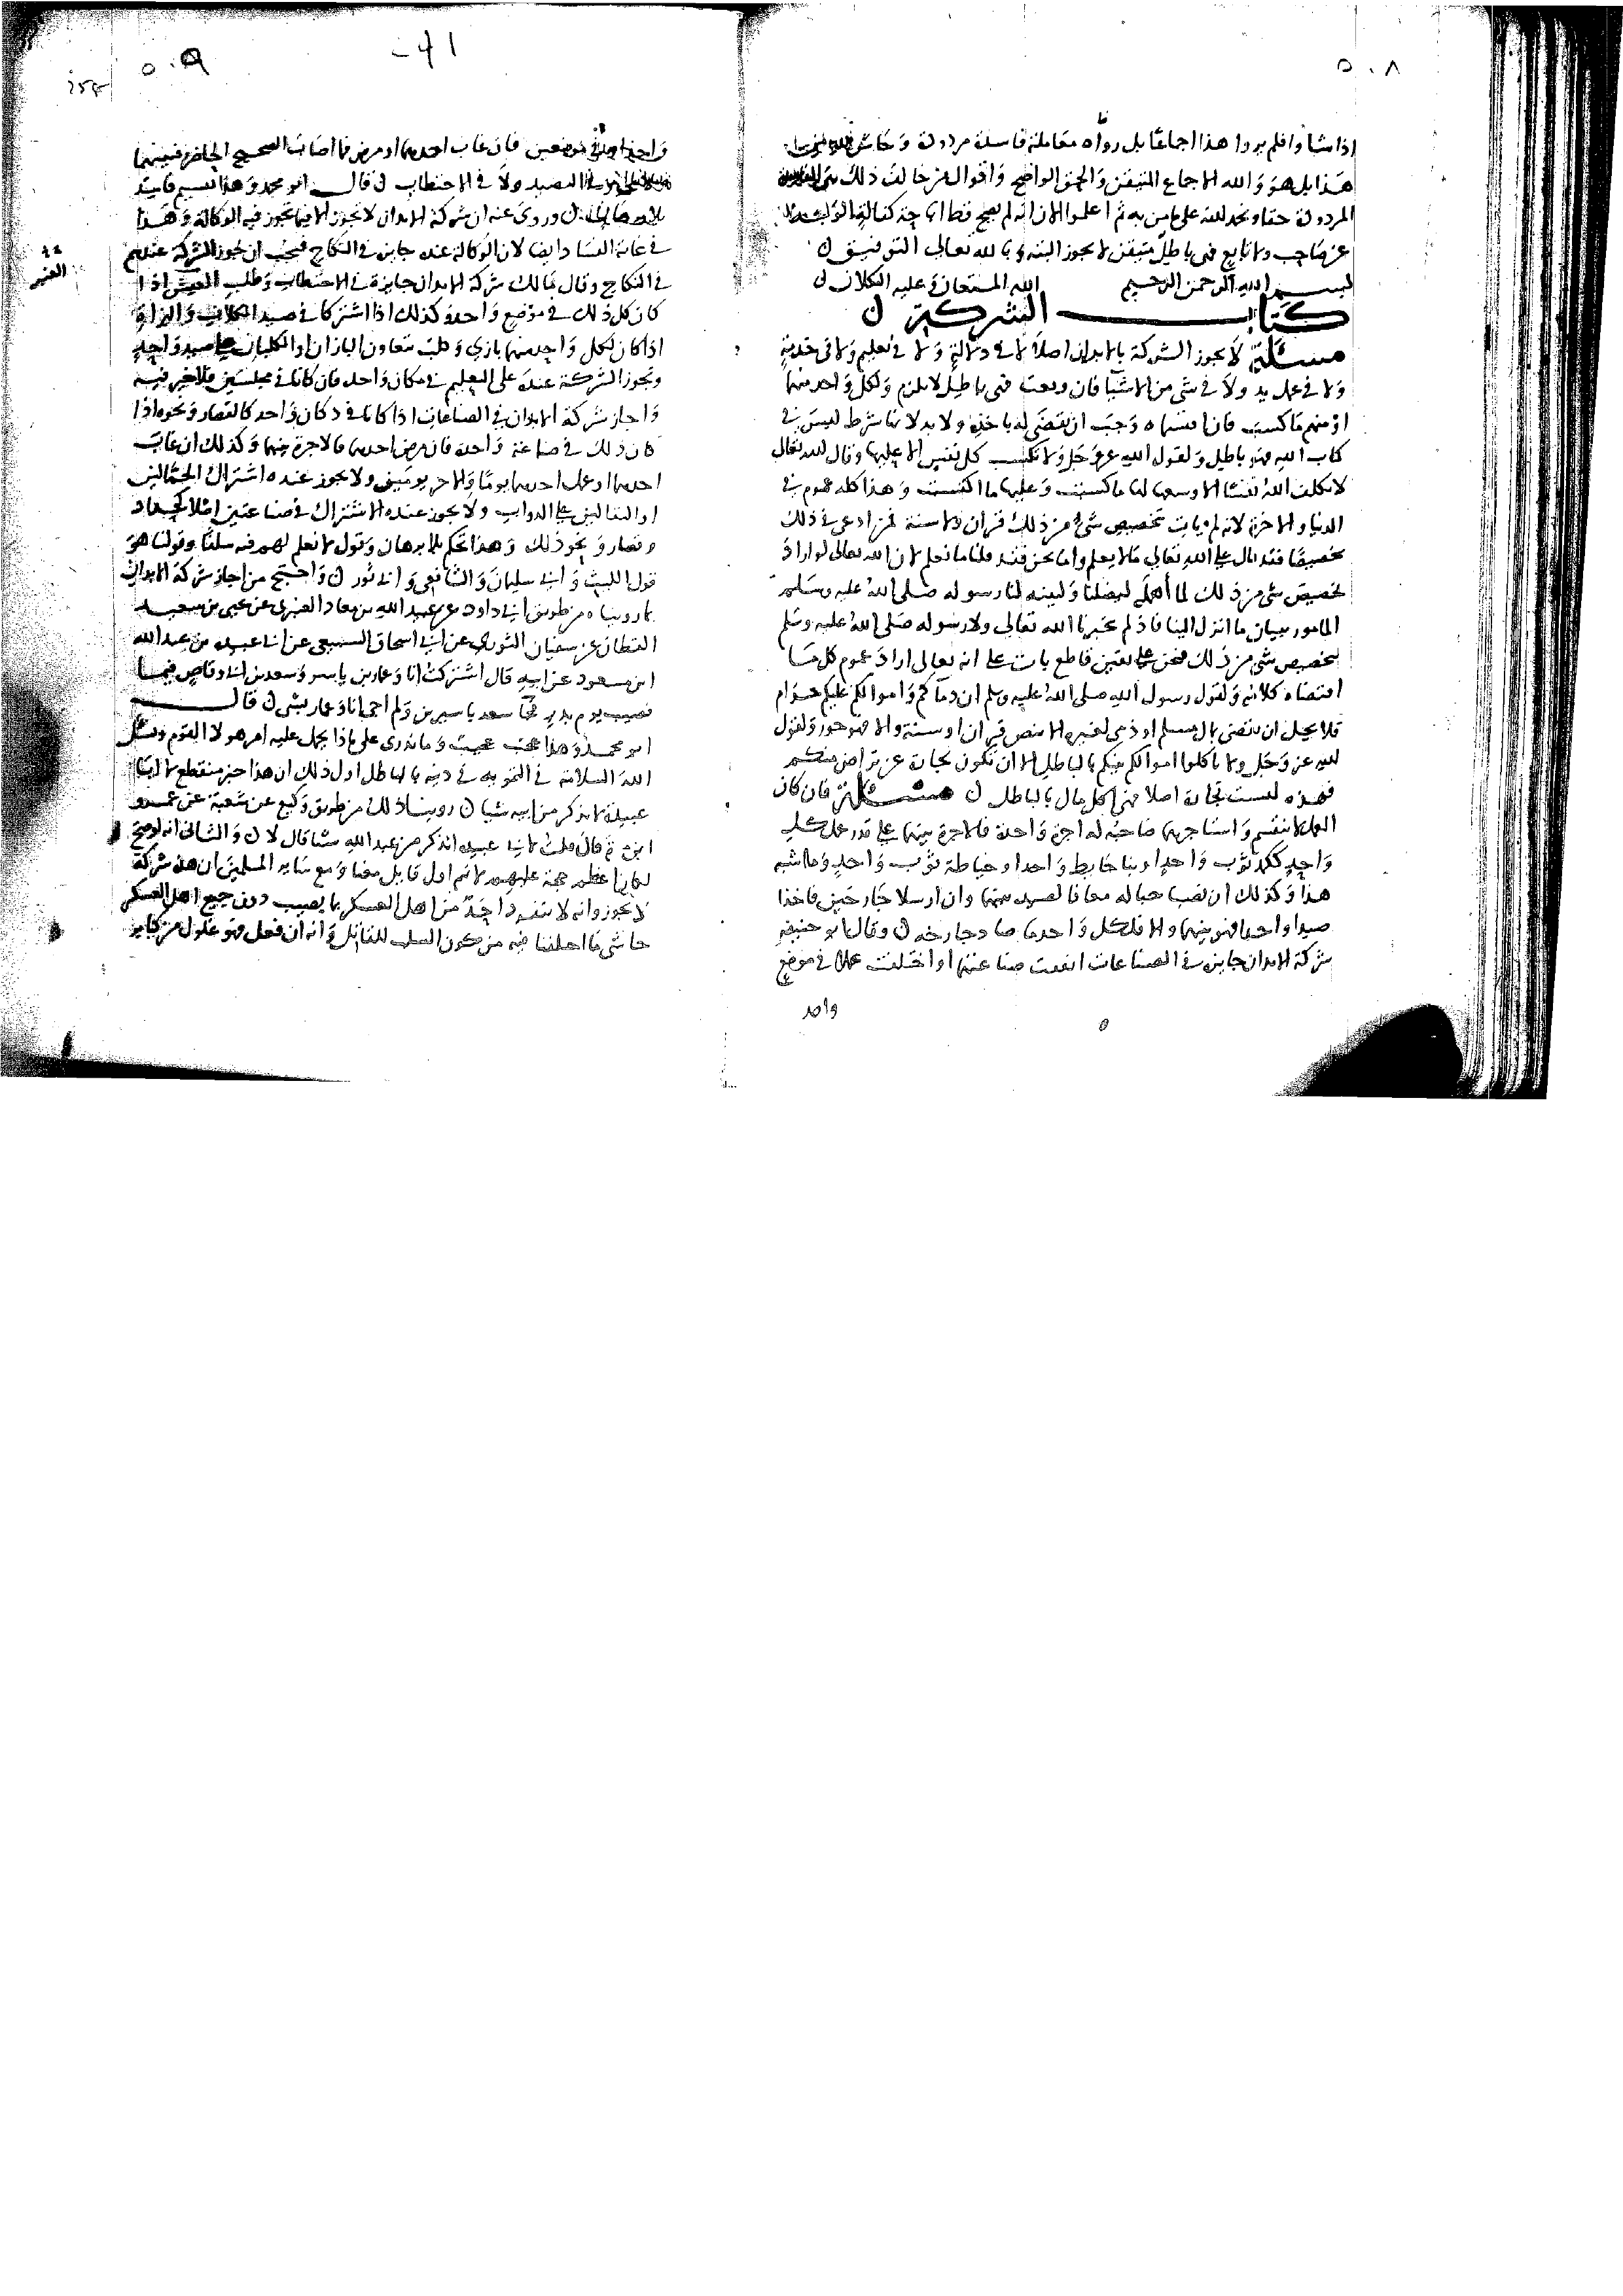 ٥٠٨
اذا شاوا فلم يروا هذا اجماعا بل رواه معاملة فاسدة مردودة وحاش لله من
هذا بل هو والله الاجماع المتيقن والحق الواضح واقوال من خالف ذلك هي الفاسدة
المردودة حقا ونحمد الله على ما من به ثم اعلموا الان انه لم يصح قط اباحة كفالة
عن صاحب ولا تابع فهي باطل متيقن لا يجوز البتة وبالله تعالى التوفيق ن
بسم الله الرحمن الرحيم الله المستعان وعليه التكلان ن
كتاب الشركة ن
مسئلة لا يجوز الشركة بالابدان اصلا لا في دلالة ولا في تعليم ولا في خدمة
ولا في عمل يد ولا في شي من الاشيا فان وقعت فهي باطل لا يلزم ولكل واحد منهما
او منهم ما كسب فان اقتسماه وجب ان يقضى له ياخذه ولا بد لانها شرط ليس في
كتاب الله فهو باطل ولقول الله عز وجل ولا تكسب كل نفس الا عليها وقال الله تعالى
لا يكلف الله نفسا الا وسعها لها ما كسبت وعليها ما اكتسبت وهذا كله عموم في
الدنيا والاخرة لانه لم يات تخصيص شي من ذلك قران ولا سنة فمن ادعى في ذلك
تخصيصا فقد قال على الله تعالى ما لا يعلم واما نحن فقد قلنا ما نعلم لان الله تعالى لو اراد
تخصيص شي من ذلك لما اهمله ليضلنا ولبينه لنا رسوله صلى الله عليه وسلم
المامور ببيان ما انزل الينا فاذ لم يخبرنا الله تعالى ولا رسوله صلى الله عليه وسلم
بتخصيص شي من ذلك فنحن على يقين قاطع بات على انه تعالى اراد عموم كل ما
اقتضاه كلامه ولقول رسول الله صلى الله عليه وسلم ان دماكم واموالكم عليكم حرام
فلا يحل ان يقضى بمال مسلم او ذمي لغيره الا بنص قران او سنة والا فهو جور ولقول
الله عز وجل ولا تاكلوا اموالكم بينكم بالباطل الا ان تكون تجارة عن تراض منكم
فهذه ليست تجارة اصلا فهي اكل مال بالباطل ن مسئلة فان كان
العمل لا ينقسم واستاجرهما صاحبه له اجرة واحدة فالاجرة بينهما على قدر عمل كل
واحد ككمد ثوب واحد او بنا حايط واحد او خياطة ثوب واحد وما اشبه
هذا وكذلك ان نصبا حباله معا فالصيد بينهما وان ارسلا جارحين فاخذا
صيدا واحدا فهو بينهما والا فلكل واحد ما صاد جارحه ن وقال ابو حنيفة
شركة الابدان جايزة في الصناعات اتفقت صناعتهما او اختلفت عملا في موضع
واحد
٥٠٩
٢٥٤
واحد او في موضعين فان غاب احدهما او مرض فما اصاب الصحيح الحاضر فبينهما
ولا يجوز في التصيد ولا في الاحتطاب ن قال ابو محمد وهذا تقسيم فاسد
بلا برهان ن وروي عنه ان شركة الابدان لا تجوز الا فيما تجوز فيه الوكالة وهذا
في غاية الفساد ايضا لان الوكالة عنده جايزة في النكاح فيجب ان تجوز الشركة عندهم
في النكاح وقال مالك شركة الابدان جايزة في الاحتطاب وطلب العنبر اذا
كان كل ذلك في موضع واحد وكذلك اذا اشتركا في صيد الكلاب والبزاة
اذا كان لكل واحد منهما بازي وكلب يتعاون البازان او الكلبان على صيد واحد
وتجوز الشركة عنده على التعليم في مكان واحد فان كانا في مجلسين فلا خير فيه
واجاز شركة الابدان في الصناعات اذا كانا في دكان واحد كالقصار ونحوه اذا
كان ذلك في صناعة واحدة فان مرض احدهما فالاجرة بينهما وكذلك ان غاب
احدهما او عمل احدهما يوما والاخر يومين ولا يجوز عنده اشتراك الحمالين
او النقالين على الدواب ولا يجوز عنده الاشتراك في صناعتين اصلا كحداد
وقصار ونحو ذلك وهذا تحكم بلا برهان وقول لا نعلم لهم فيه سلفا وقولنا هو
قول الليث وابي سليمان والشافعي وابي ثور ن واحتج من اجاز شركة الابدان
بما رويناه من طريق ابي داود عن عبيد الله بن معاذ العنبري عن يحيى بن سعيد
القطان عن سفيان الثوري عن ابي اسحاق السبيعي عن ابي عبيدة بن عبد الله
ابن مسعود عن ابيه قال اشتركت انا وعمار بن ياسر وسعد بن ابي وقاص فيما
نصيب يوم بدر فجا سعد باسيرين ولم اجي انا وعمار بشي ن قال
ابو محمد وهذا عجب عجيب وما ندري على ماذا يحمل عليه امر هولا القوم ونسل
الله السلامة في التمويه في دينه بالباطل اول ذلك ان هذا خبر منقطع لان ابا
عبيدة لا يذكر من ابيه شيا ن روينا ذلك من طريق وكيع عن شعبة عن عمرو
ابن مرة قال قلت لابي عبيدة اتذكر من عبد الله شيا قال لا ن والثاني انه لو صح
لكان اعظم حجة عليهم لانهم اول قايل معنا ومع ساير المسلمين ان هذه شركة
لا تجوز وانه لا ينفرد احد من اهل العسكر بما يصيب دون جميع اهل العسكر
حاشى ما اختلفنا فيه من كون السلب للقاتل وانه ان فعل فهو غلول من كباير
العنبر